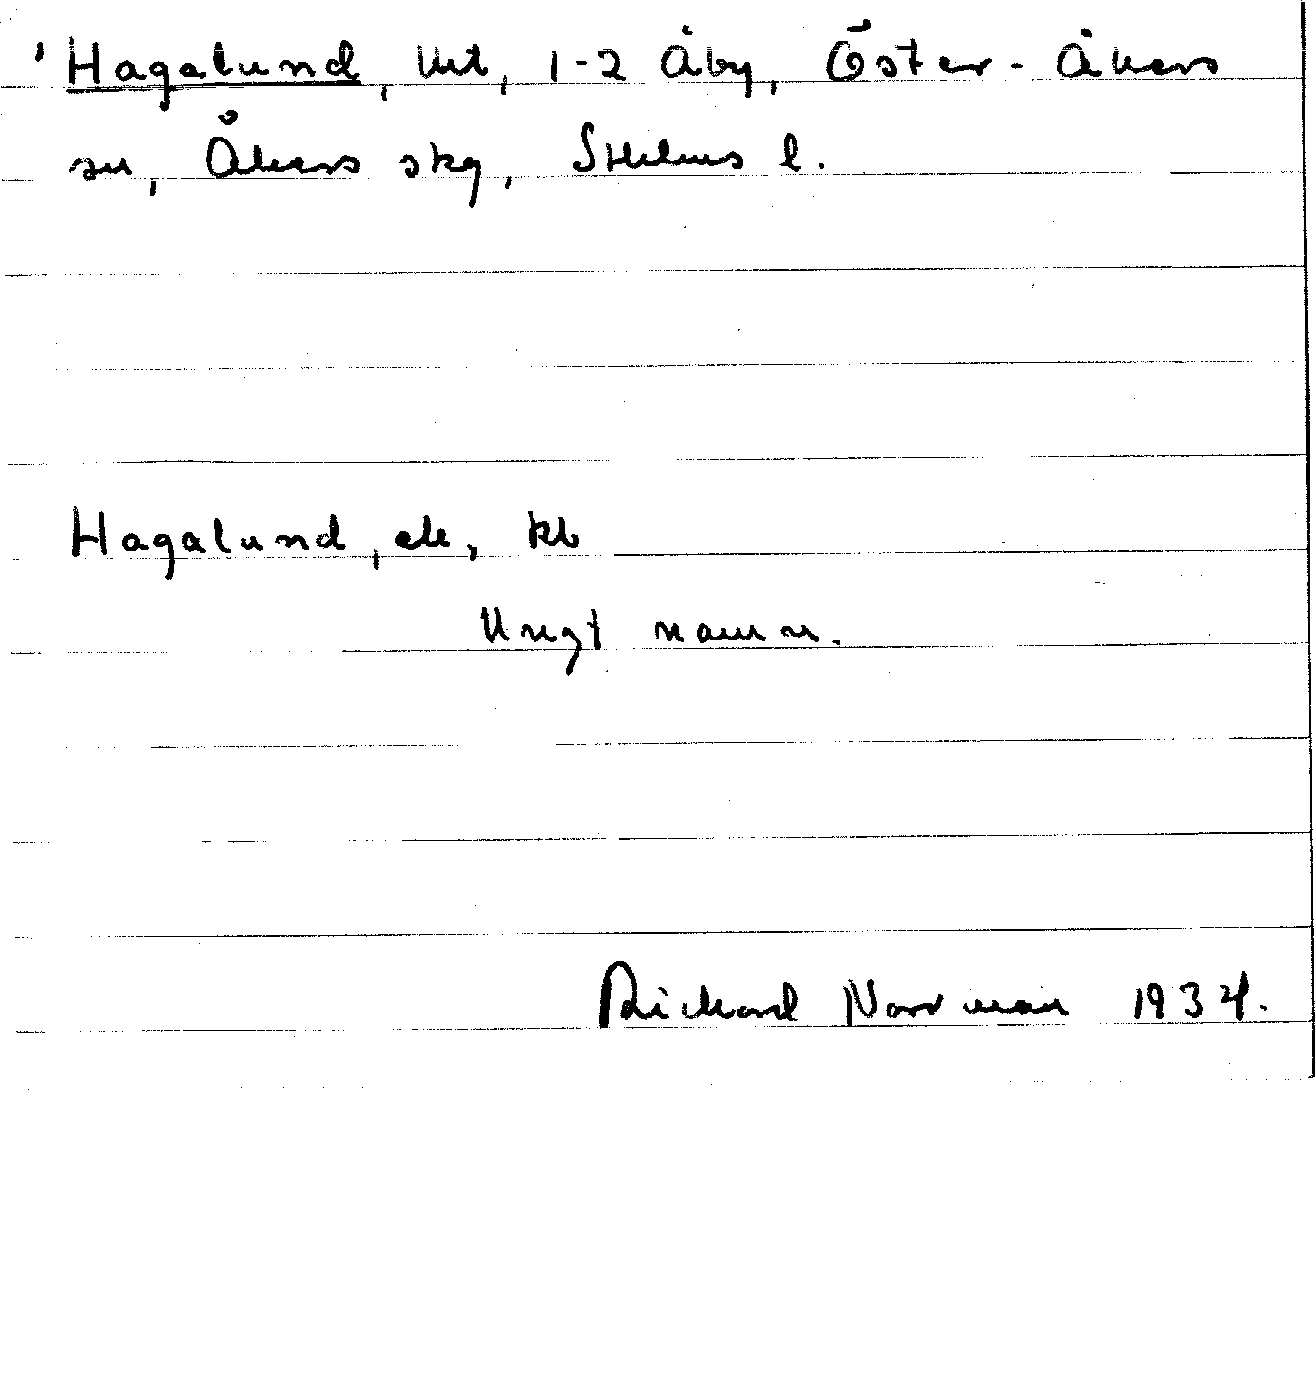 ' Hagalund, lht, 1-2 Åby, Öster-Åkers
sn, Åkers skg, Sthlms l.
Hagalund, ek, kb
Ungt namn.
Richard Norrman 1934.